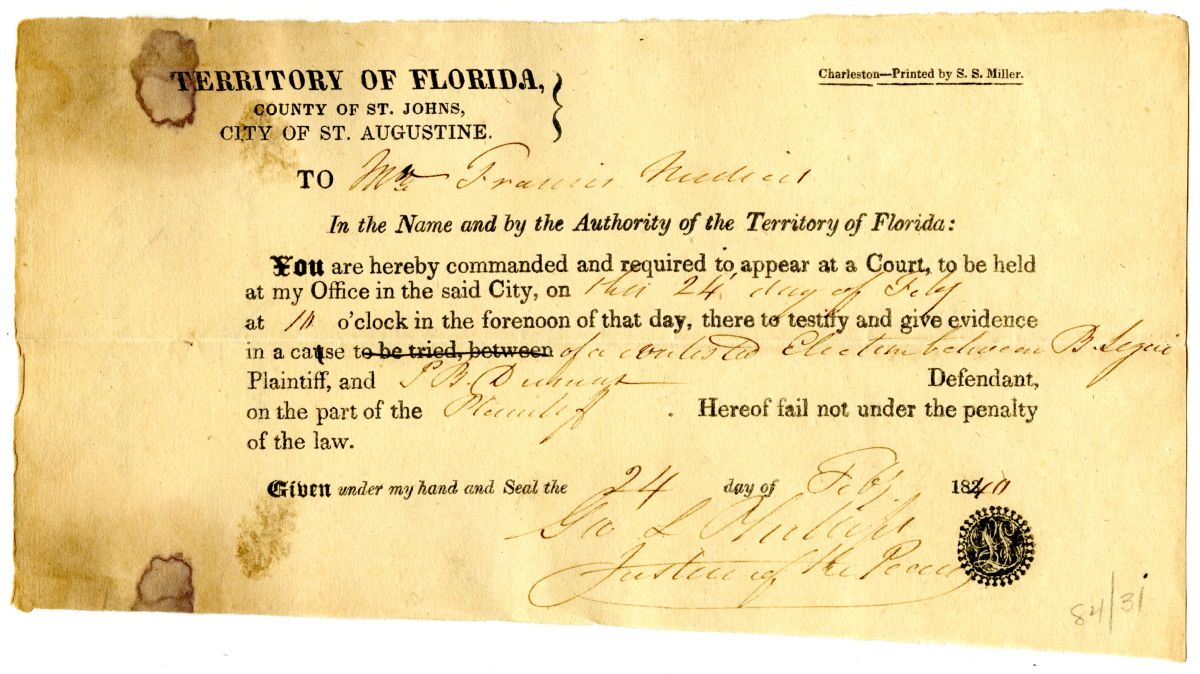 TERRITORY OF FLORIDA,
COUNTY OF ST. JOHNS,
CITY OF ST. AUGUSTINE.
Charleston—Printed by S. S. Miller.
TO Mr Francis
In the Name and by the Authority of the Territory of Florida:
You are hereby commanded and required to appear at a Court, to be held
at my Office in the said City, on this 24 day of Feby
at 10 o'clock in the forenoon of that day, there to testify and give evidence
in a cause to be tried, between of a contested Election between B. Segui
Plaintiff, and P B. Dumas Defendant,
on the part of the Plaintiff . Hereof fail not under the penalty
of the law.
Given under my hand and Seal the 24 day of Feby. 1840
Geo L Phillips
Justice of the Peace
LS
84/31